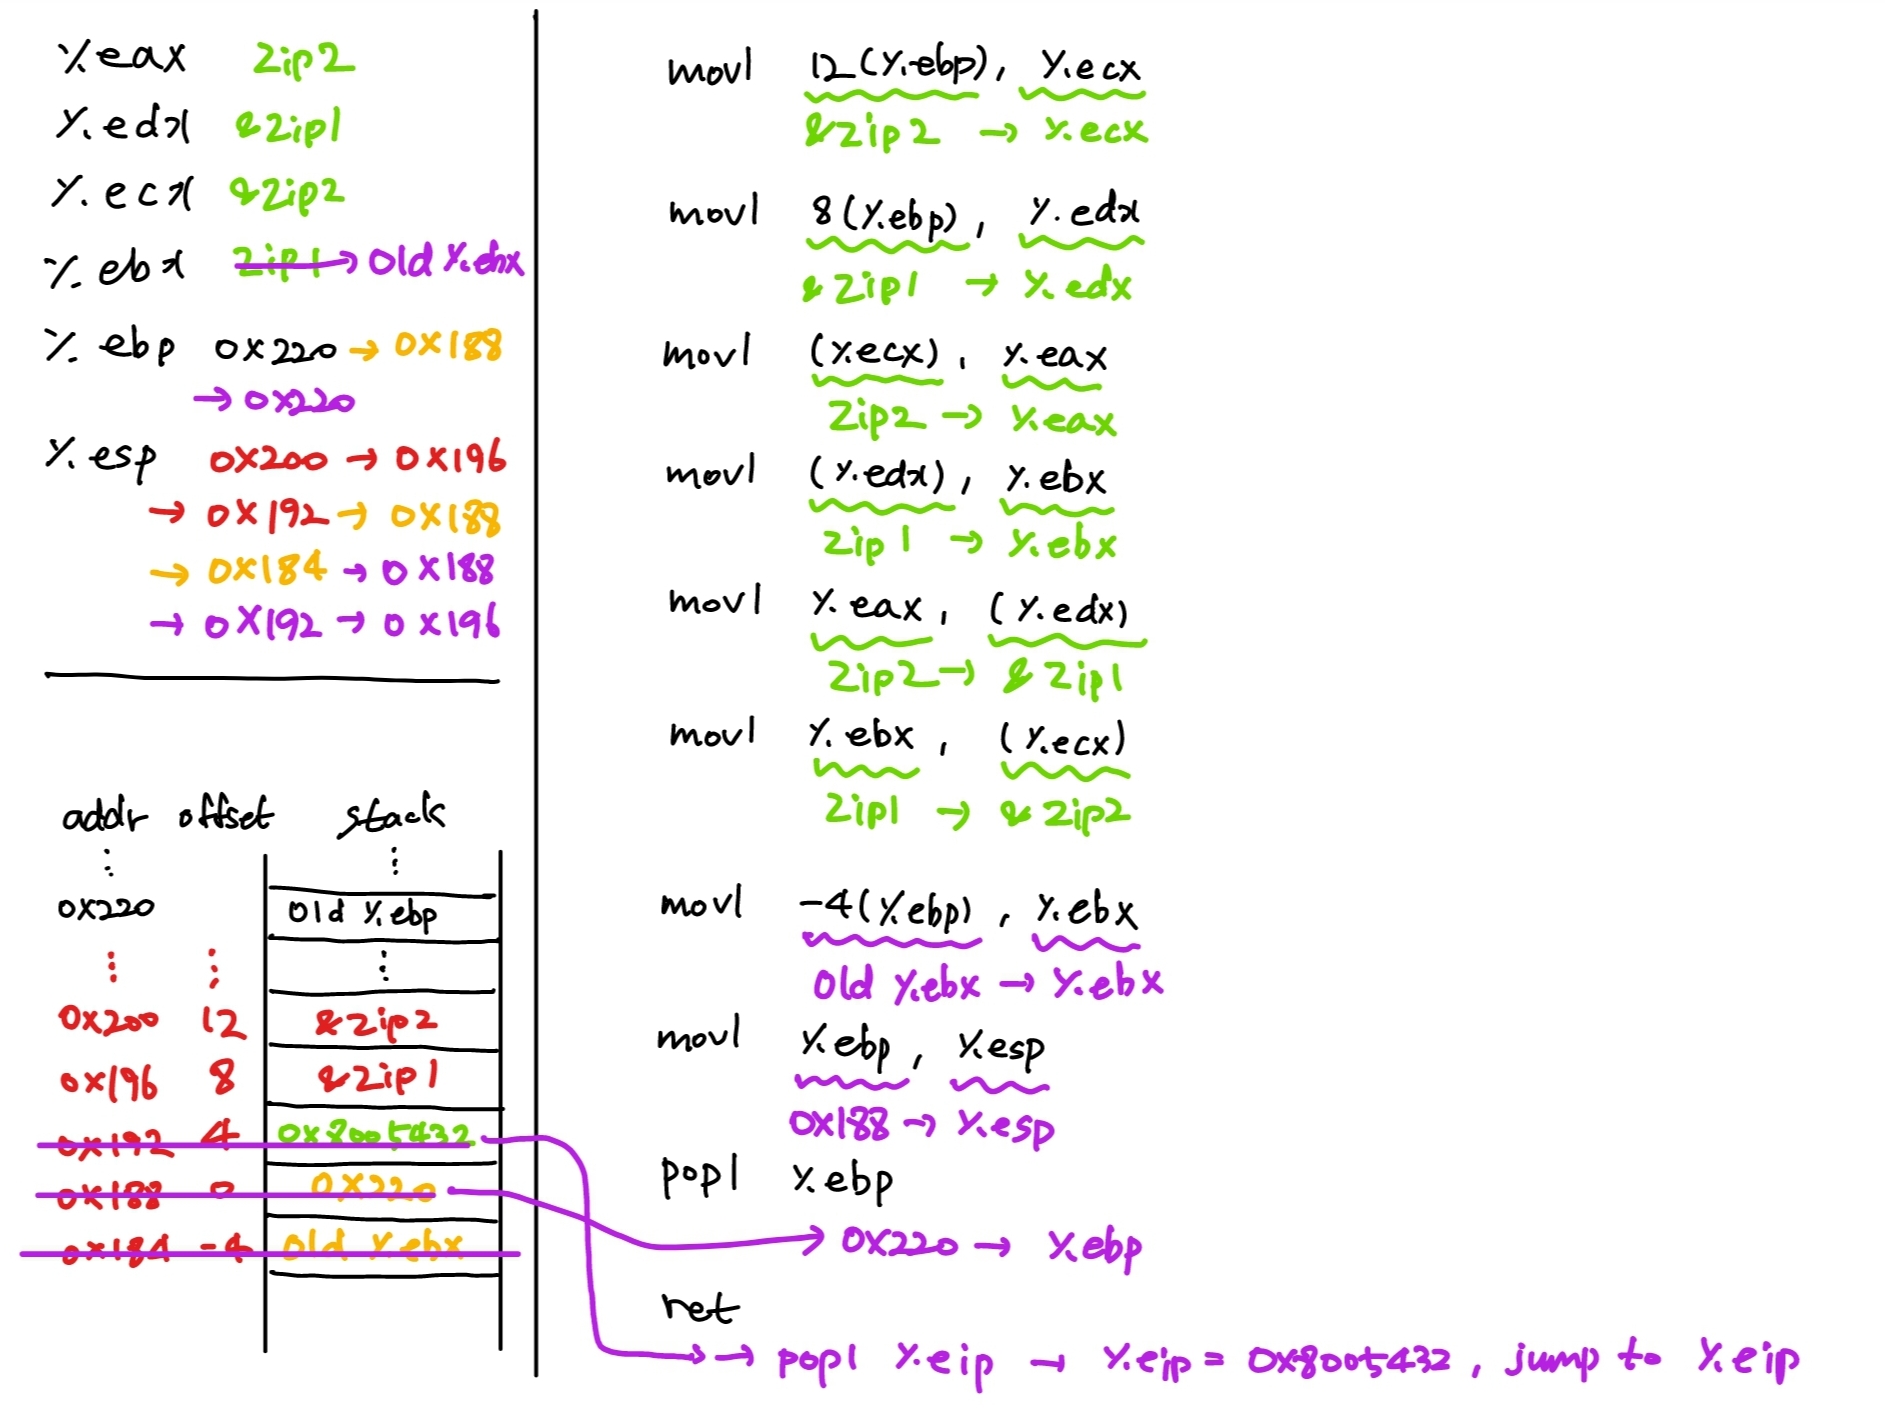 %eax zip2
%edx &zip1
%ecx &zip2
%ebx zip1 → old %ebx
%ebp 0x220 → 0x188
→ 0x220
%esp 0x200 → 0x196
→ 0x192 → 0x188
→ 0x184 → 0x188
→ 0x192 → 0x196
addr offset stack
0x220 old %ebp
0x200 12 &zip2
0x196 8 &zip1
0x192 4 0x8005432
0x188 0 0x220
0x184 -4 old %ebx
movl 12(%ebp), %ecx
&zip2 → %ecx
movl 8(%ebp), %edx
&zip1 → %edx
movl (%ecx), %eax
zip2 → %eax
movl (%edx), %ebx
zip1 → %ebx
movl %eax, (%edx)
zip2 → &zip1
movl %ebx, (%ecx)
zip1 → &zip2
movl -4(%ebp), %ebx
old %ebx → %ebx
movl %ebp, %esp
0x188 → %esp
popl %ebp
→ 0x220 → %ebp
ret
→ → popl %eip → %eip = 0x8005432, jump to %eip